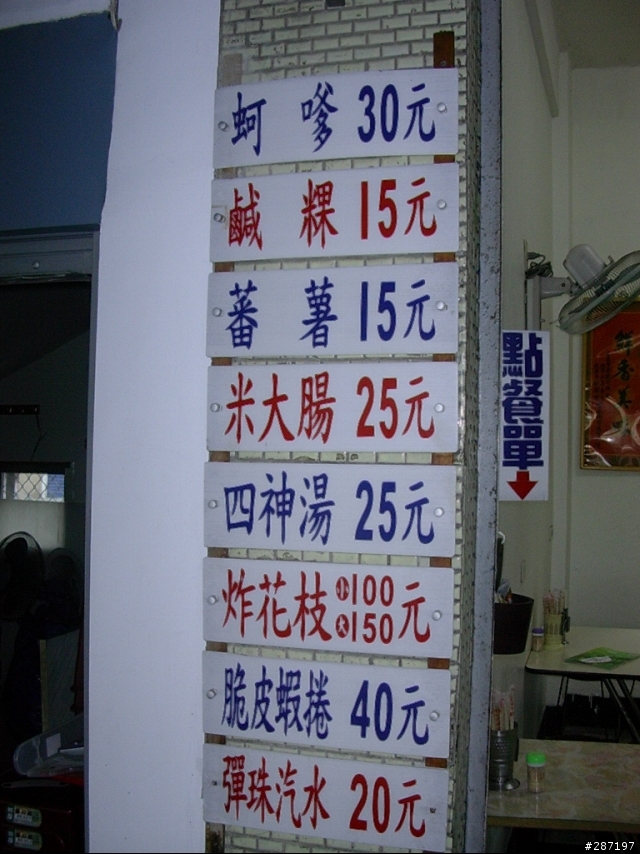 蚵嗲 30元
鹹粿 15元
蕃薯 15元
米大腸 25元
四神湯 25元
炸花枝 小100 大150 元
脆皮蝦捲 40元
彈珠汽水 20元
點餐單
#287197